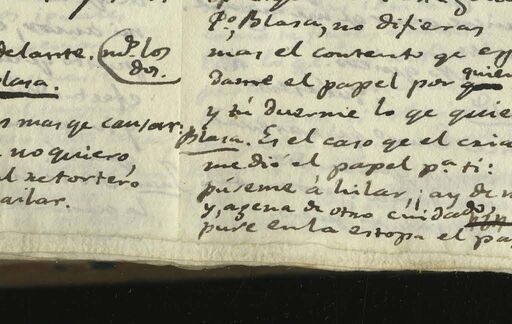 delante.
los
dos.
Blasa.
mas qe cansar:
no quiero,
al retortero
ailar.
Po. Blasa, no difieras
mas el contento qe es
darme el papel por quien
y si duerme lo qe quie
Blasa. Es el caso qe el cria
me dió el papel pa. ti:
púseme á hilar, ¡ay de m
y, agena de otro cuidado,
puse en la estopa el pa